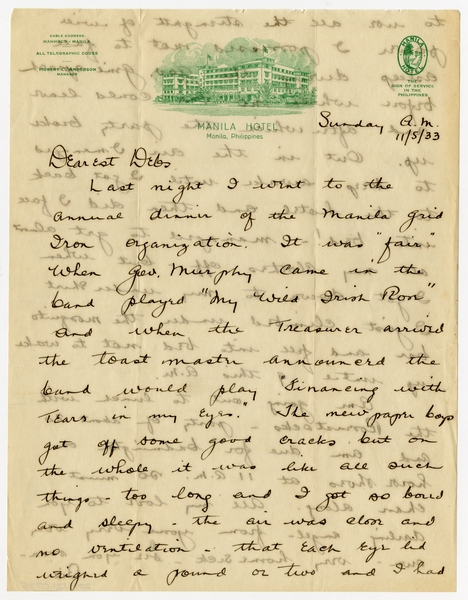 CABLE ADDRESS:
MANHOTEL-MANILA
ALL TELEGRAPHIC CODES
ROBERT C. ANDERSON
MANAGER
MANILA HOTEL
THE
SIGN OF SERVICE
IN THE
PHILIPPINES
MANILA HOTEL
Manila, Philippines
Sunday A.M.
11/5/33
Dearest Debs
Last night I went to the
annual dinner of the Manila grid
Iron organization. It was "fair"
When Gov. Murphy came in the
band played "My Wild Irish Rose"
and when the Treasurer arrived
the toast master announced the
band would play "Financing with
Tears in my Eyes." The newspaper boys
got off some good cracks but on
the whole it was like all such
things - too long and I got so bored
and sleepy - the air was close and
no ventilation - that each eye lid
weighed a pound or two and I had